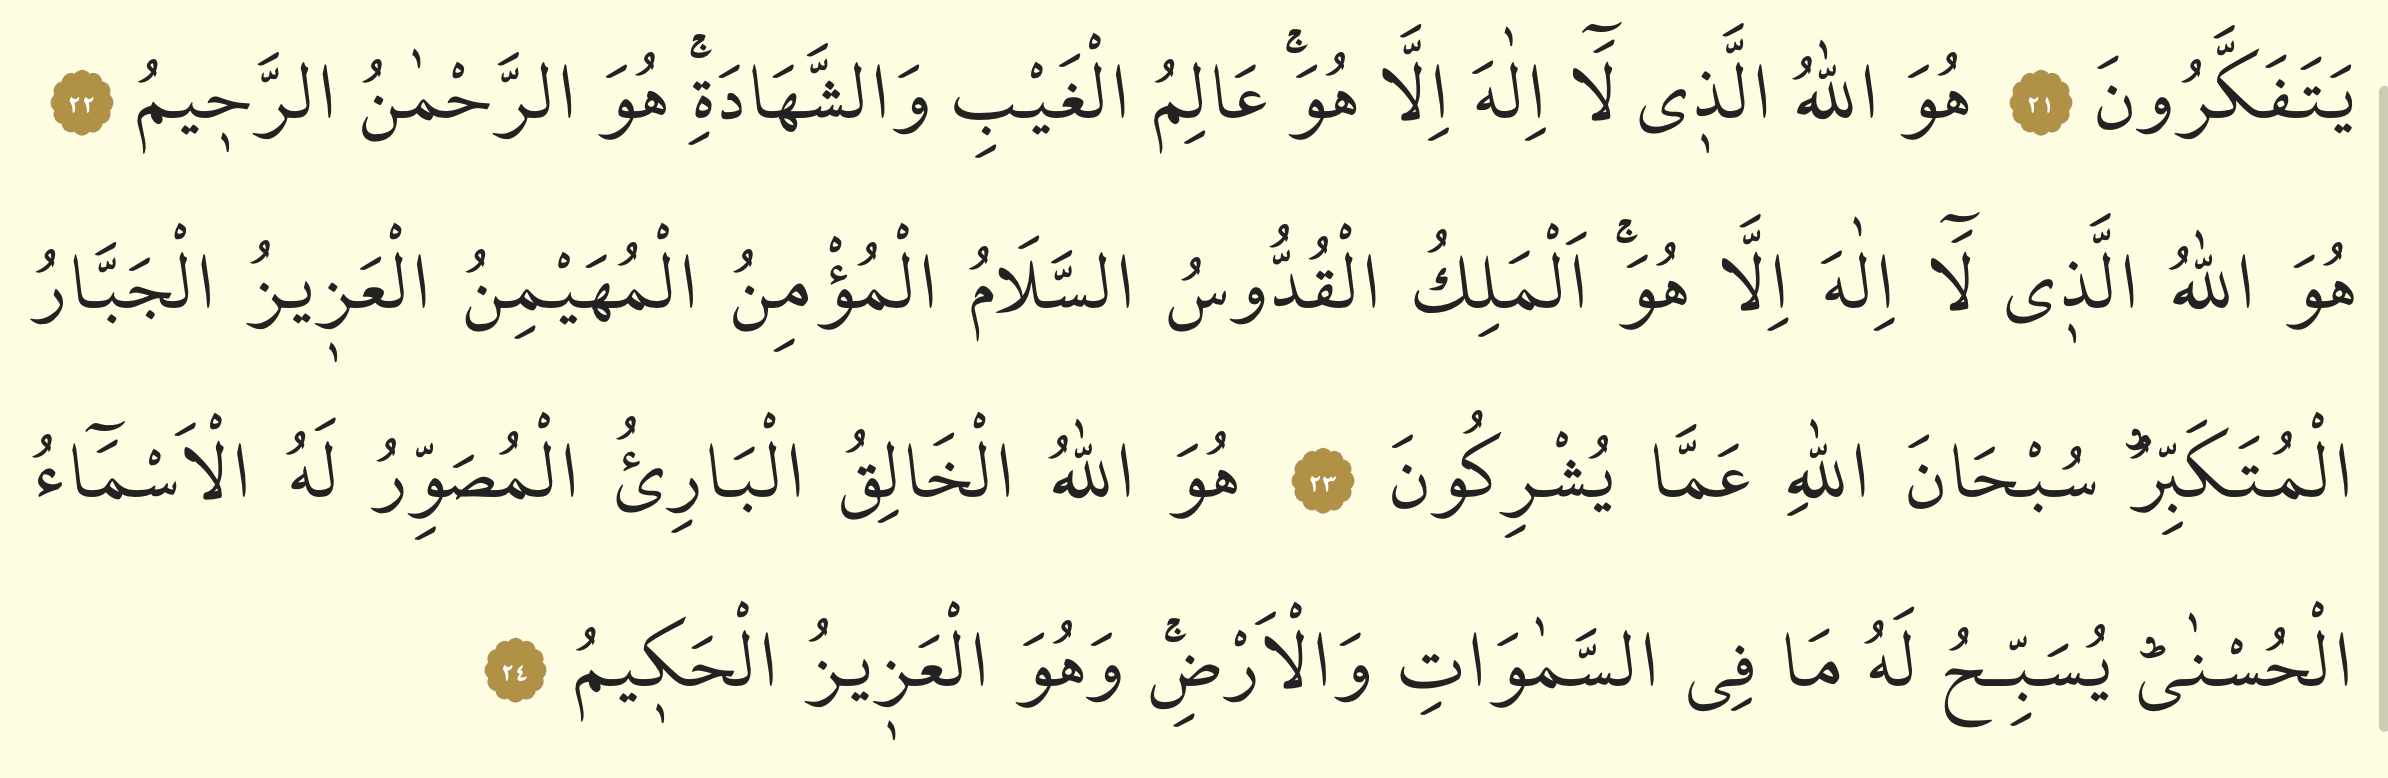 يَتَفَكَّرُونَ ٢١ هُوَ اللّٰهُ الَّذ۪ى لَٓا اِلٰهَ اِلَّا هُوَۚ عَالِمُ الْغَيْبِ وَالشَّهَادَةِۚ هُوَ الرَّحْمٰنُ الرَّح۪يمُ ٢٢
هُوَ اللّٰهُ الَّذ۪ى لَٓا اِلٰهَ اِلَّا هُوَۚ اَلْمَلِكُ الْقُدُّوسُ السَّلَامُ الْمُؤْمِنُ الْمُهَيْمِنُ الْعَز۪يزُ الْجَبَّارُ
الْمُتَكَبِّرُۜ سُبْحَانَ اللّٰهِ عَمَّا يُشْرِكُونَ ٢٣ هُوَ اللّٰهُ الْخَالِقُ الْبَارِئُ الْمُصَوِّرُ لَهُ الْاَسْمَٓاءُ
الْحُسْنٰىۜ يُسَبِّحُ لَهُ مَا فِى السَّمٰوَاتِ وَالْاَرْضِۚ وَهُوَ الْعَز۪يزُ الْحَك۪يمُ ٢٤